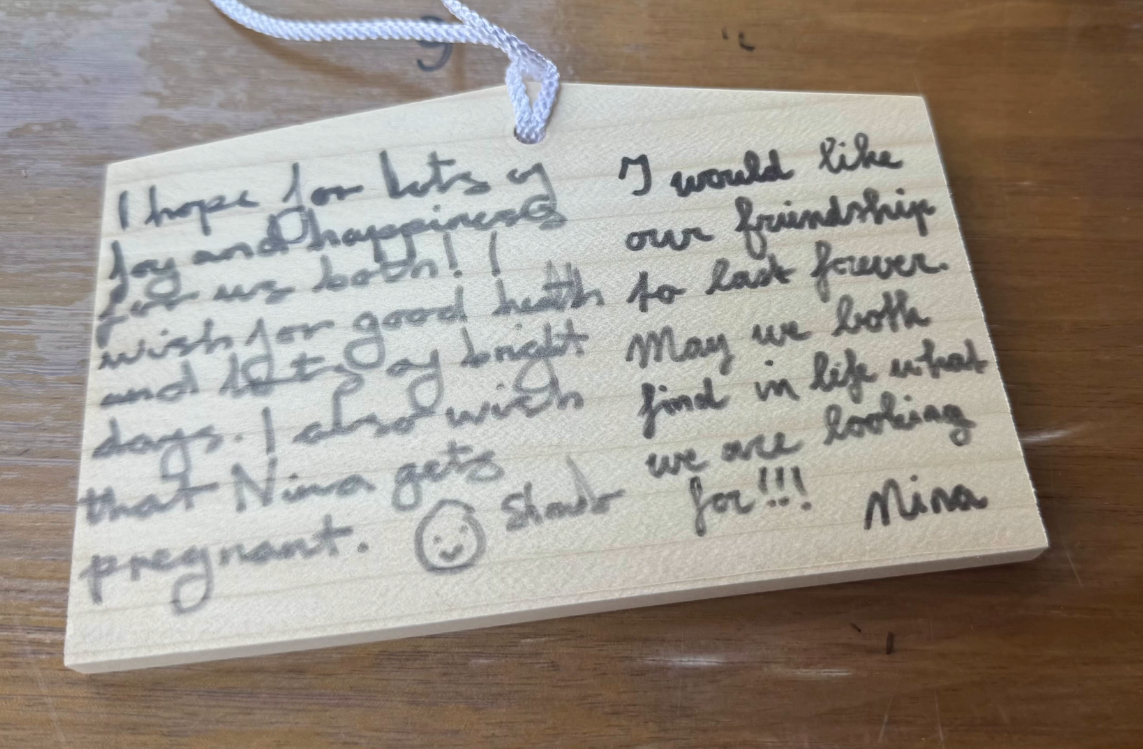 I hope for lots of
joy and happiness
for us both! I
wish for good health
and lots of bright
days. I also wish
that Nina gets
pregnant.
I would like
our friendship
to last forever.
May we both
find in life what
we are looking
for!!! Nina